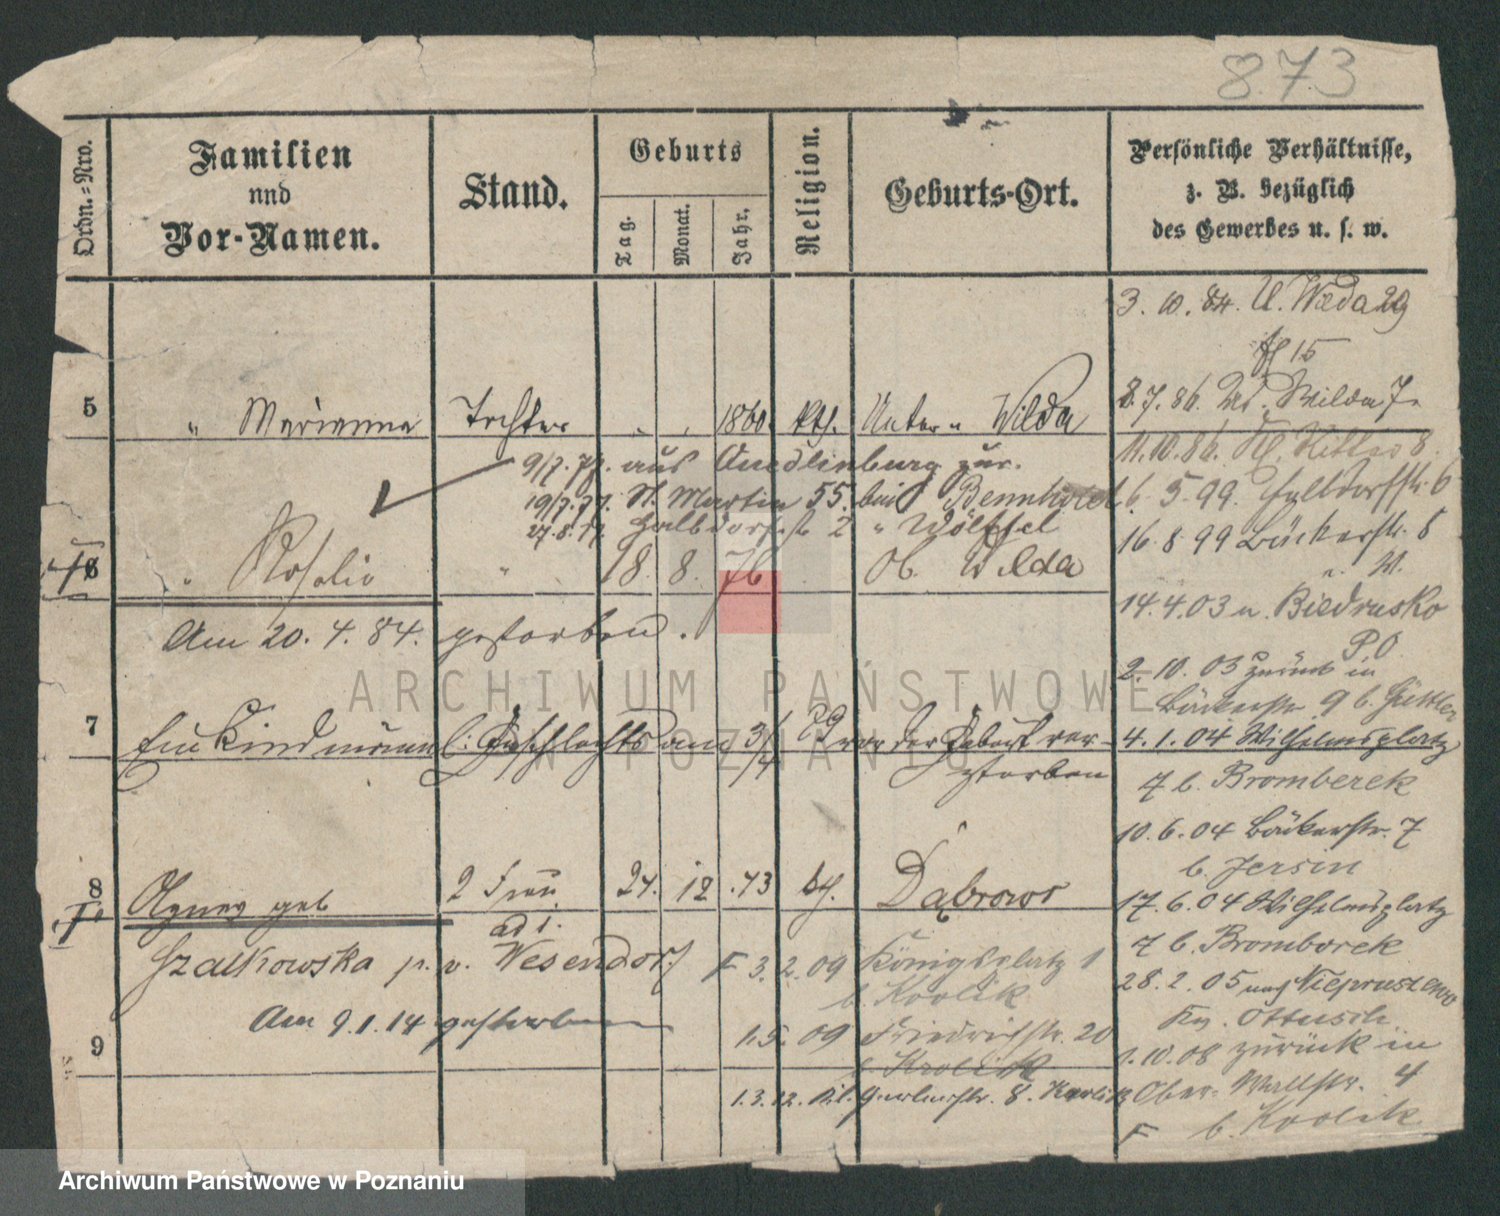 873
Ordn.=Nro.
Familien
und
Vor-Namen.
Stand.
Geburts
Tag.
Monat.
Jahr.
Religion.
Geburts-Ort.
Persönliche Verhältnisse,
z. B. bezüglich
des Gewerbes u. s. w.
5
" Marianna
Tochter
" "
1860.
kth.
Unter " Wilda
9/7. 77. aus Quedlinburg zur.
19/7. 77. St. Martin 55. bei Bennhold
27.8.77. Halbdorfst 2 " Wölffel
6
" Rosalie
"
18. 8. 76
Ob. Wilda
Am 20. 4. 84. gestorben.
7
Ein Kind männl: Geschlechts am 3/4 79 vor der Geburt ver-
storben
8
Agnes geb
2 Frau
ad 1.
24. 12. 73
kth.
Dąbrowo
Szalkowska p. v. Wesendorf
Am 9.1.14 gestorben
9
F 3. 2. 09 Königsplatz 1
b. Krolik
1.5. 09 Friedrichstr. 20
b. Krolik
1.3.12. Kl. Gerberstr. 8. Krolik
3. 10. 84. U. Wilda 29
15
8. 7. 86. Wilda 7
11.10.86. Kl. Ritter 8.
6. 5. 99. Halbdorfstr. 6
16. 8. 99 Bäckerstr. 8
14. 4. 03 n. Biedrusko
P.O.
2. 10. 03 zurück in
Bäckerstr. 9 b. Güttler
4. 1. 04 Wilhelmsplatz
7 b. Bromberek
10. 6. 04 Bäckerstr. 7
b. Jersin
17. 6. 04 Wilhelmsplatz
7 b. Bromborek
28. 2. 05 nach Niepruszewo
Kr. Ottusch
1. 10. 08 zurück in
Ober. Wallstr. 4
F b. Krolik
ARCHIWUM PAŃSTWOWE
W POZNANIU
Archiwum Państwowe w Poznaniu